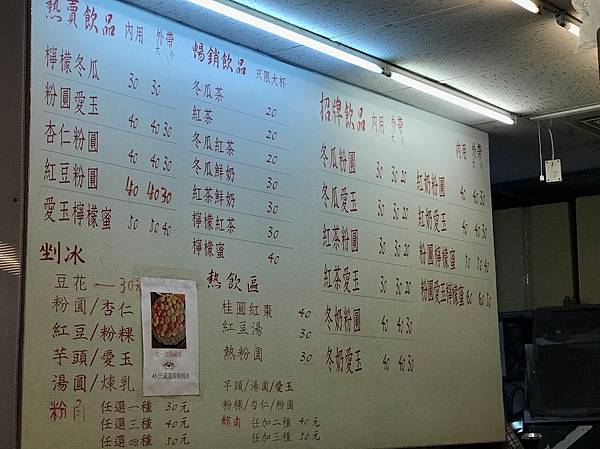 熱賣飲品 內用 外帶 大 小
檸檬冬瓜 30 30
粉圓愛玉 40 40 30
杏仁粉圓 40 40 30
紅豆粉圓 40 40 30
愛玉檸檬蜜 50 50 40
剉冰
豆花 — 30元
粉圓/杏仁
紅豆/粉粿
芋頭/愛玉
湯圓/煉乳
粉角 任選一種 30元
任選三種 40元
任選四種 50元
暢銷飲品 只限大杯
冬瓜茶 20
紅茶 20
冬瓜紅茶 20
冬瓜鮮奶 30
紅茶鮮奶 30
檸檬紅茶 30
檸檬蜜 40
熱飲區
桂圓紅棗 40
紅豆湯 30
熱粉圓 30
芋頭/湯圓/愛玉
粉粿/杏仁/粉圓
粉角 任加二種 40元
任加三種 50元
招牌飲品 內用 外帶 大 小
冬瓜粉圓 30 30 20
冬瓜愛玉 30 30 20
紅茶粉圓 30 30 20
紅茶愛玉 30 30 20
冬奶粉圓 40 40 30
冬奶愛玉 40 40 30
內用 外帶 大 小
紅奶粉圓 40 40 30
紅奶愛玉 40 40 30
粉圓檸檬蜜 50 50 40
粉圓愛玉檸檬蜜 60 60 50